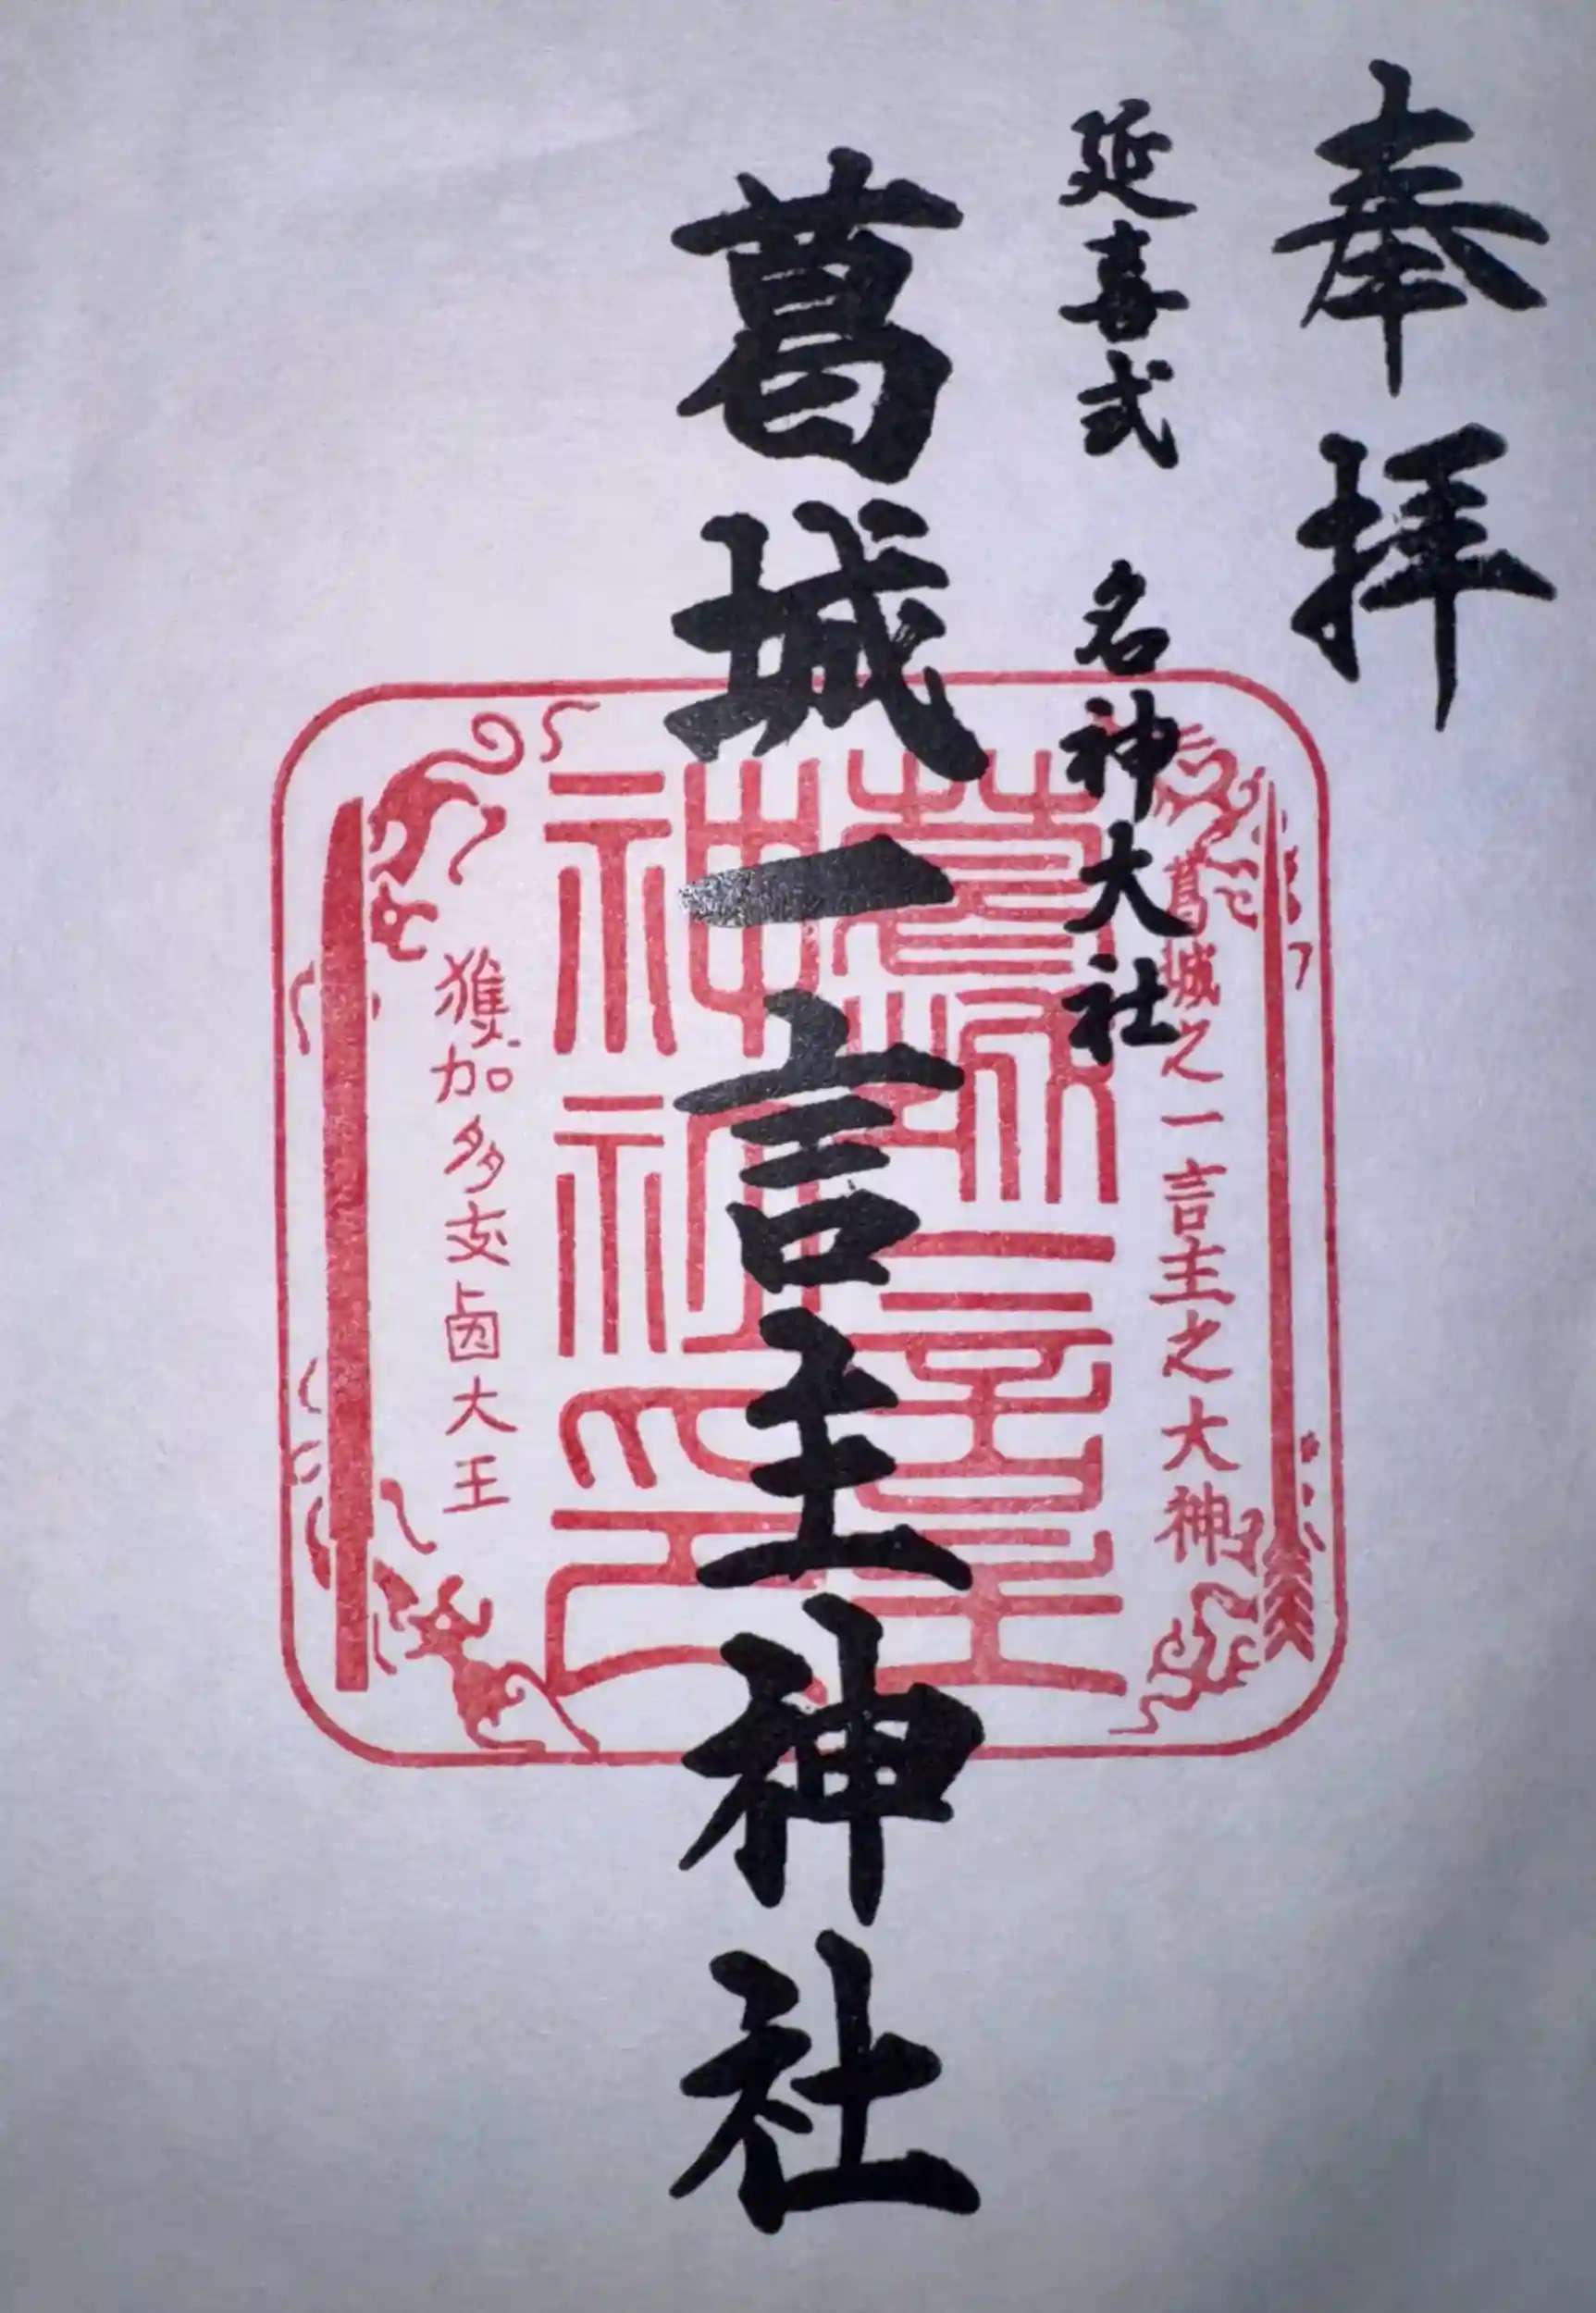 奉拝
延喜式　名神大社
葛城一言主神社
葛城之一言主之大神
葛城一言主
神社印
獲加多支鹵大王